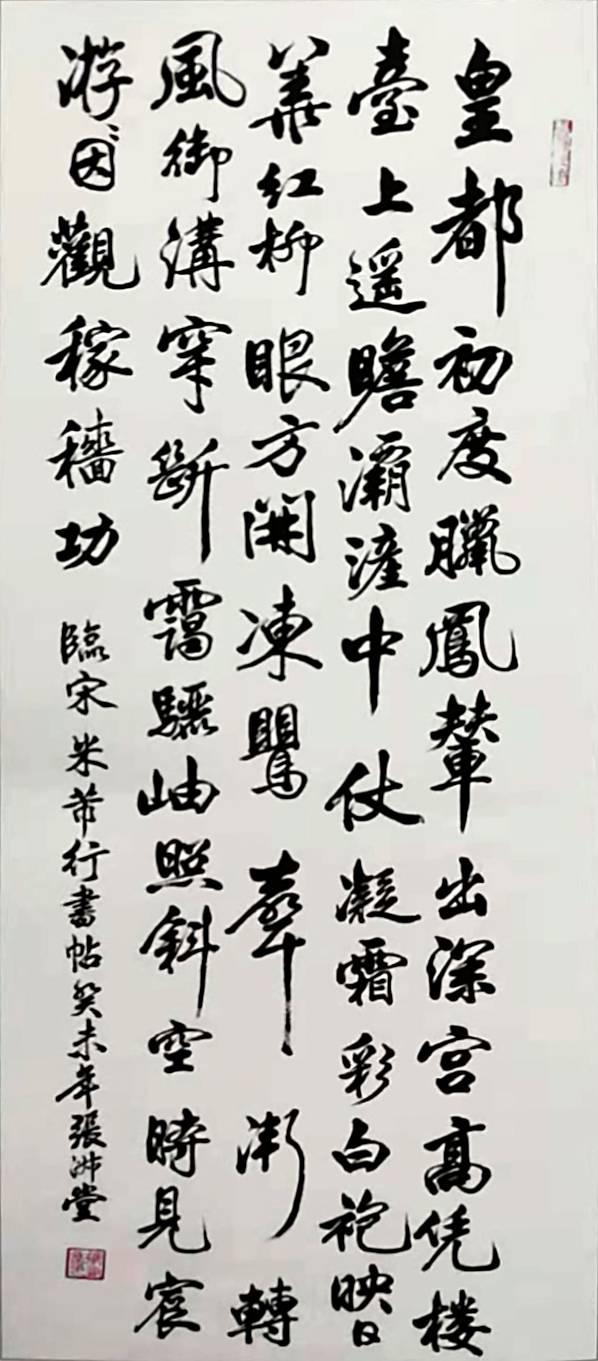 皇都初度臘鳳輦出深宮高凭楼
臺上遥瞻灞滻中仗凝霜彩白袍映日
華紅柳眼方開凍鸎聲漸轉
風御溝穿斷靄驪岫照斜空時見宸
游因觀稼穡功
臨宋米芾行書帖癸未年張堂